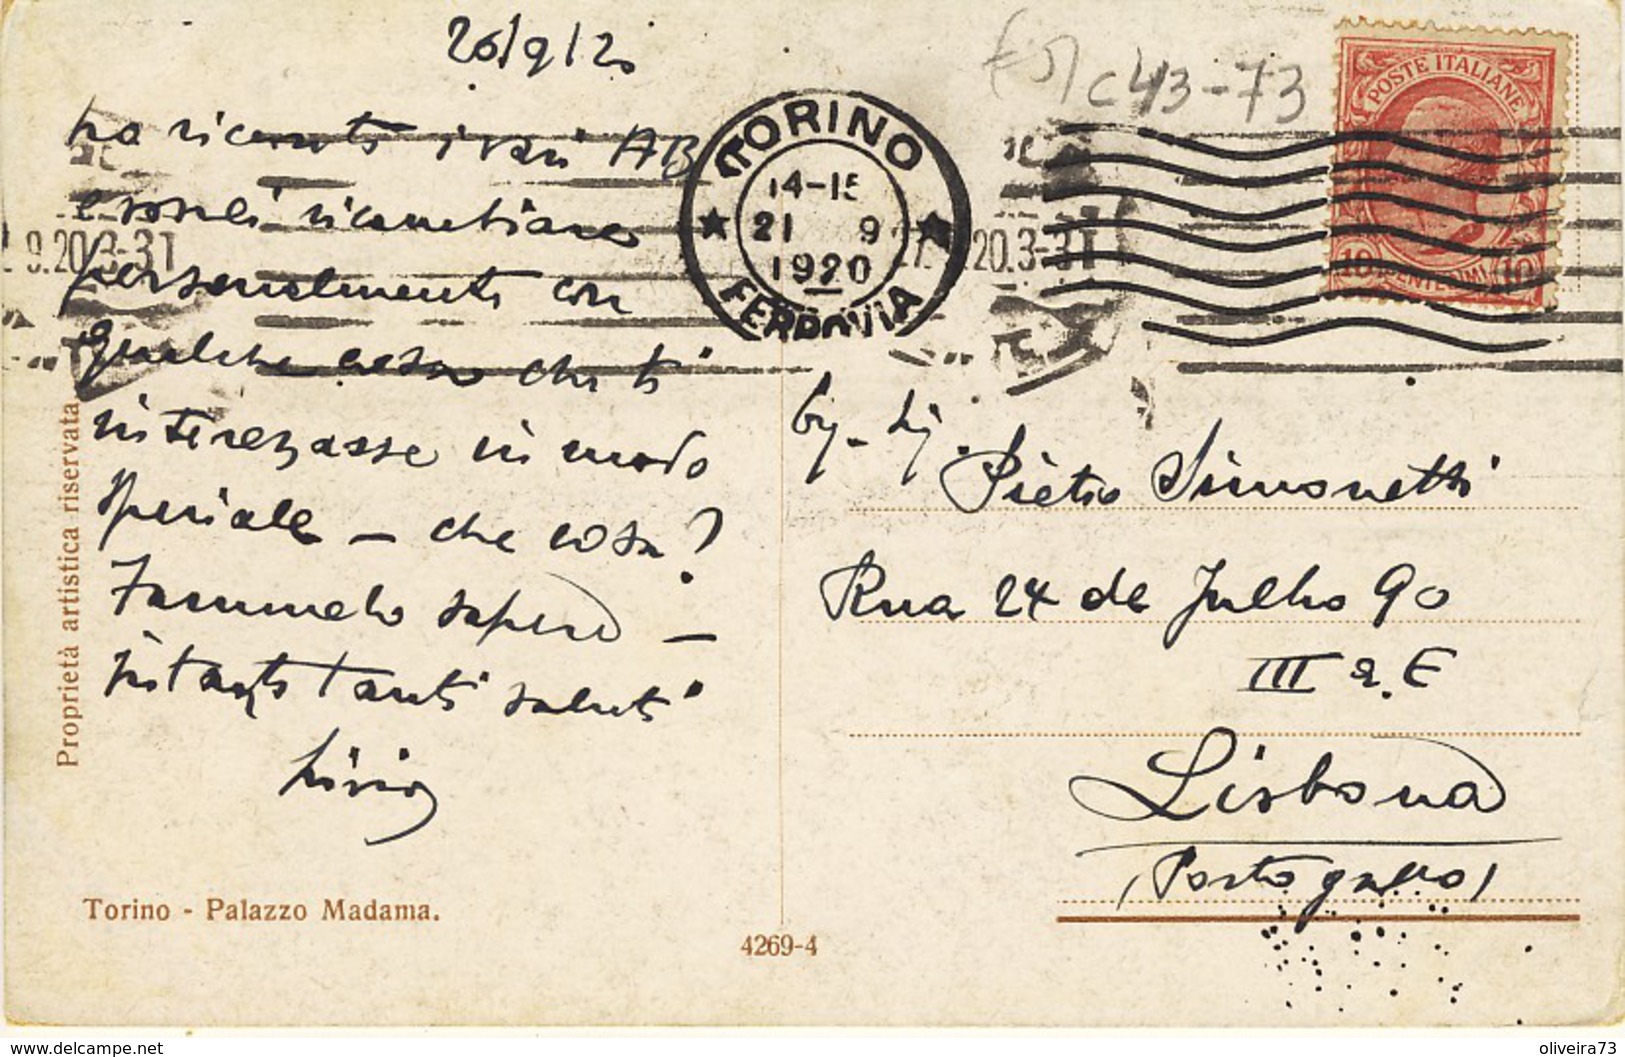 20/9/20
ho ricevuto i vari AB
e vorrei ricambiare
personalmente con
qualche cosa che ti
interessasse in modo
speciale - che cosa?
Fammelo sapere -
intanto tanti saluti
Livio
c43-73
TORINO
14-15
21 9
1920
FERROVIA
POSTE ITALIANE
10 CENTESIMI 10
9.20.3-3T
20.3-3T
Pietro Simonetti
Rua 24 de Julho 90
III E
Lisbona
(Portogallo)
Proprietà artistica riservata
Torino - Palazzo Madama.
4269-4
delcampe.net
oliveira73